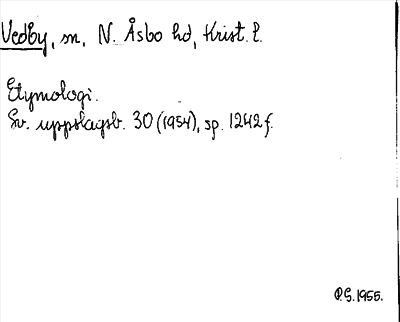 Vedby, sn, N. Åsbo hd, Krist. l.
Etymologi.
Sv. uppslagsb. 30 (1954), sp. 1242 f.
P.G. 1955.